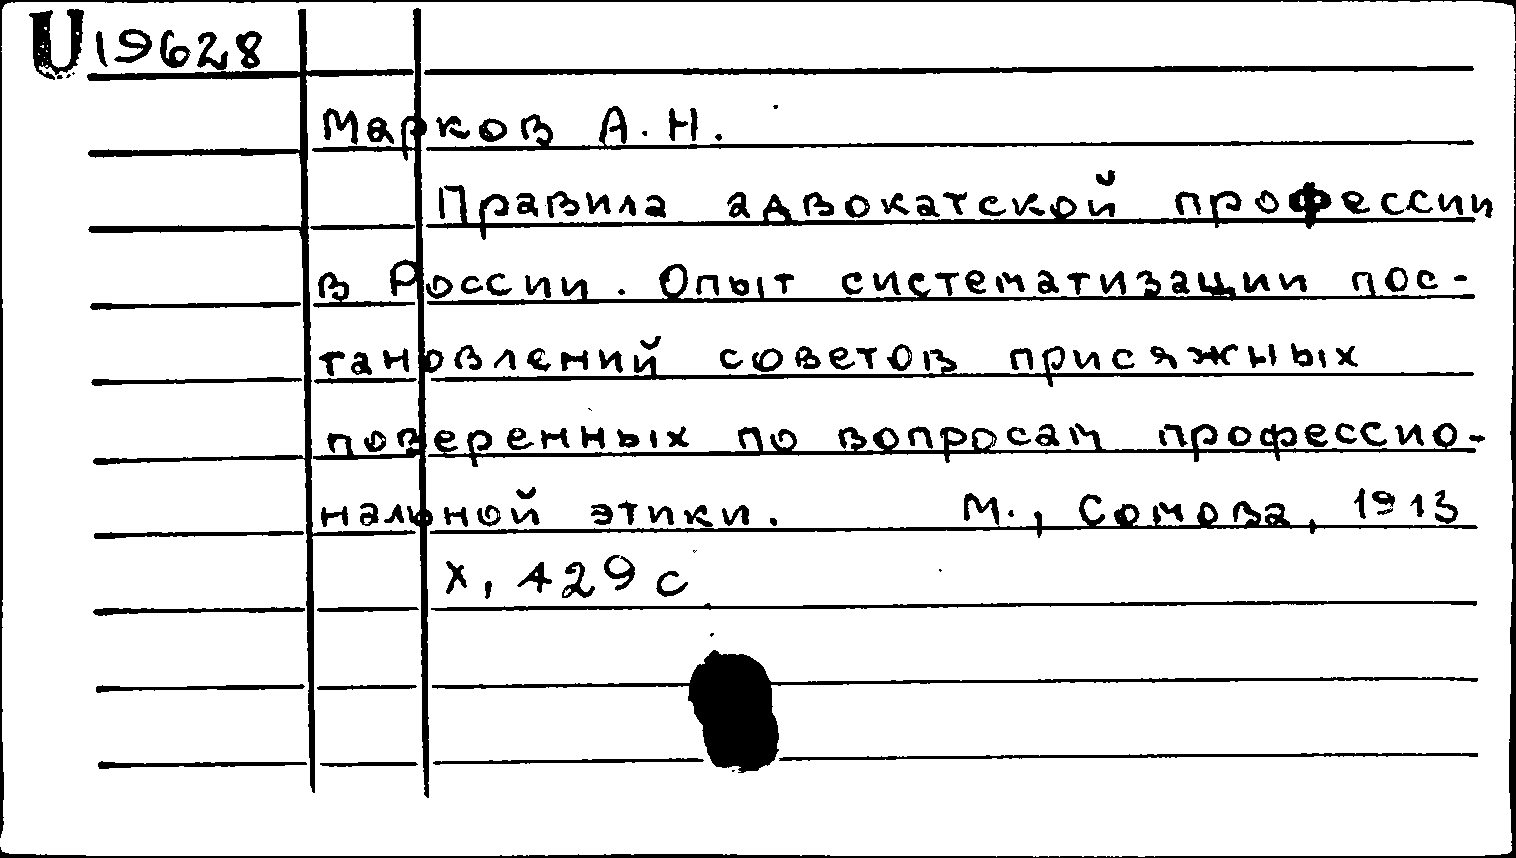 U 19628
Марков А.Н.
Правила адвокатской профессии
в России. Опыт систематизации пос-
тановлений советов присяжных
поверенных по вопросам профессио-
нальной этики. М., Сомова, 1913
X, 429 с